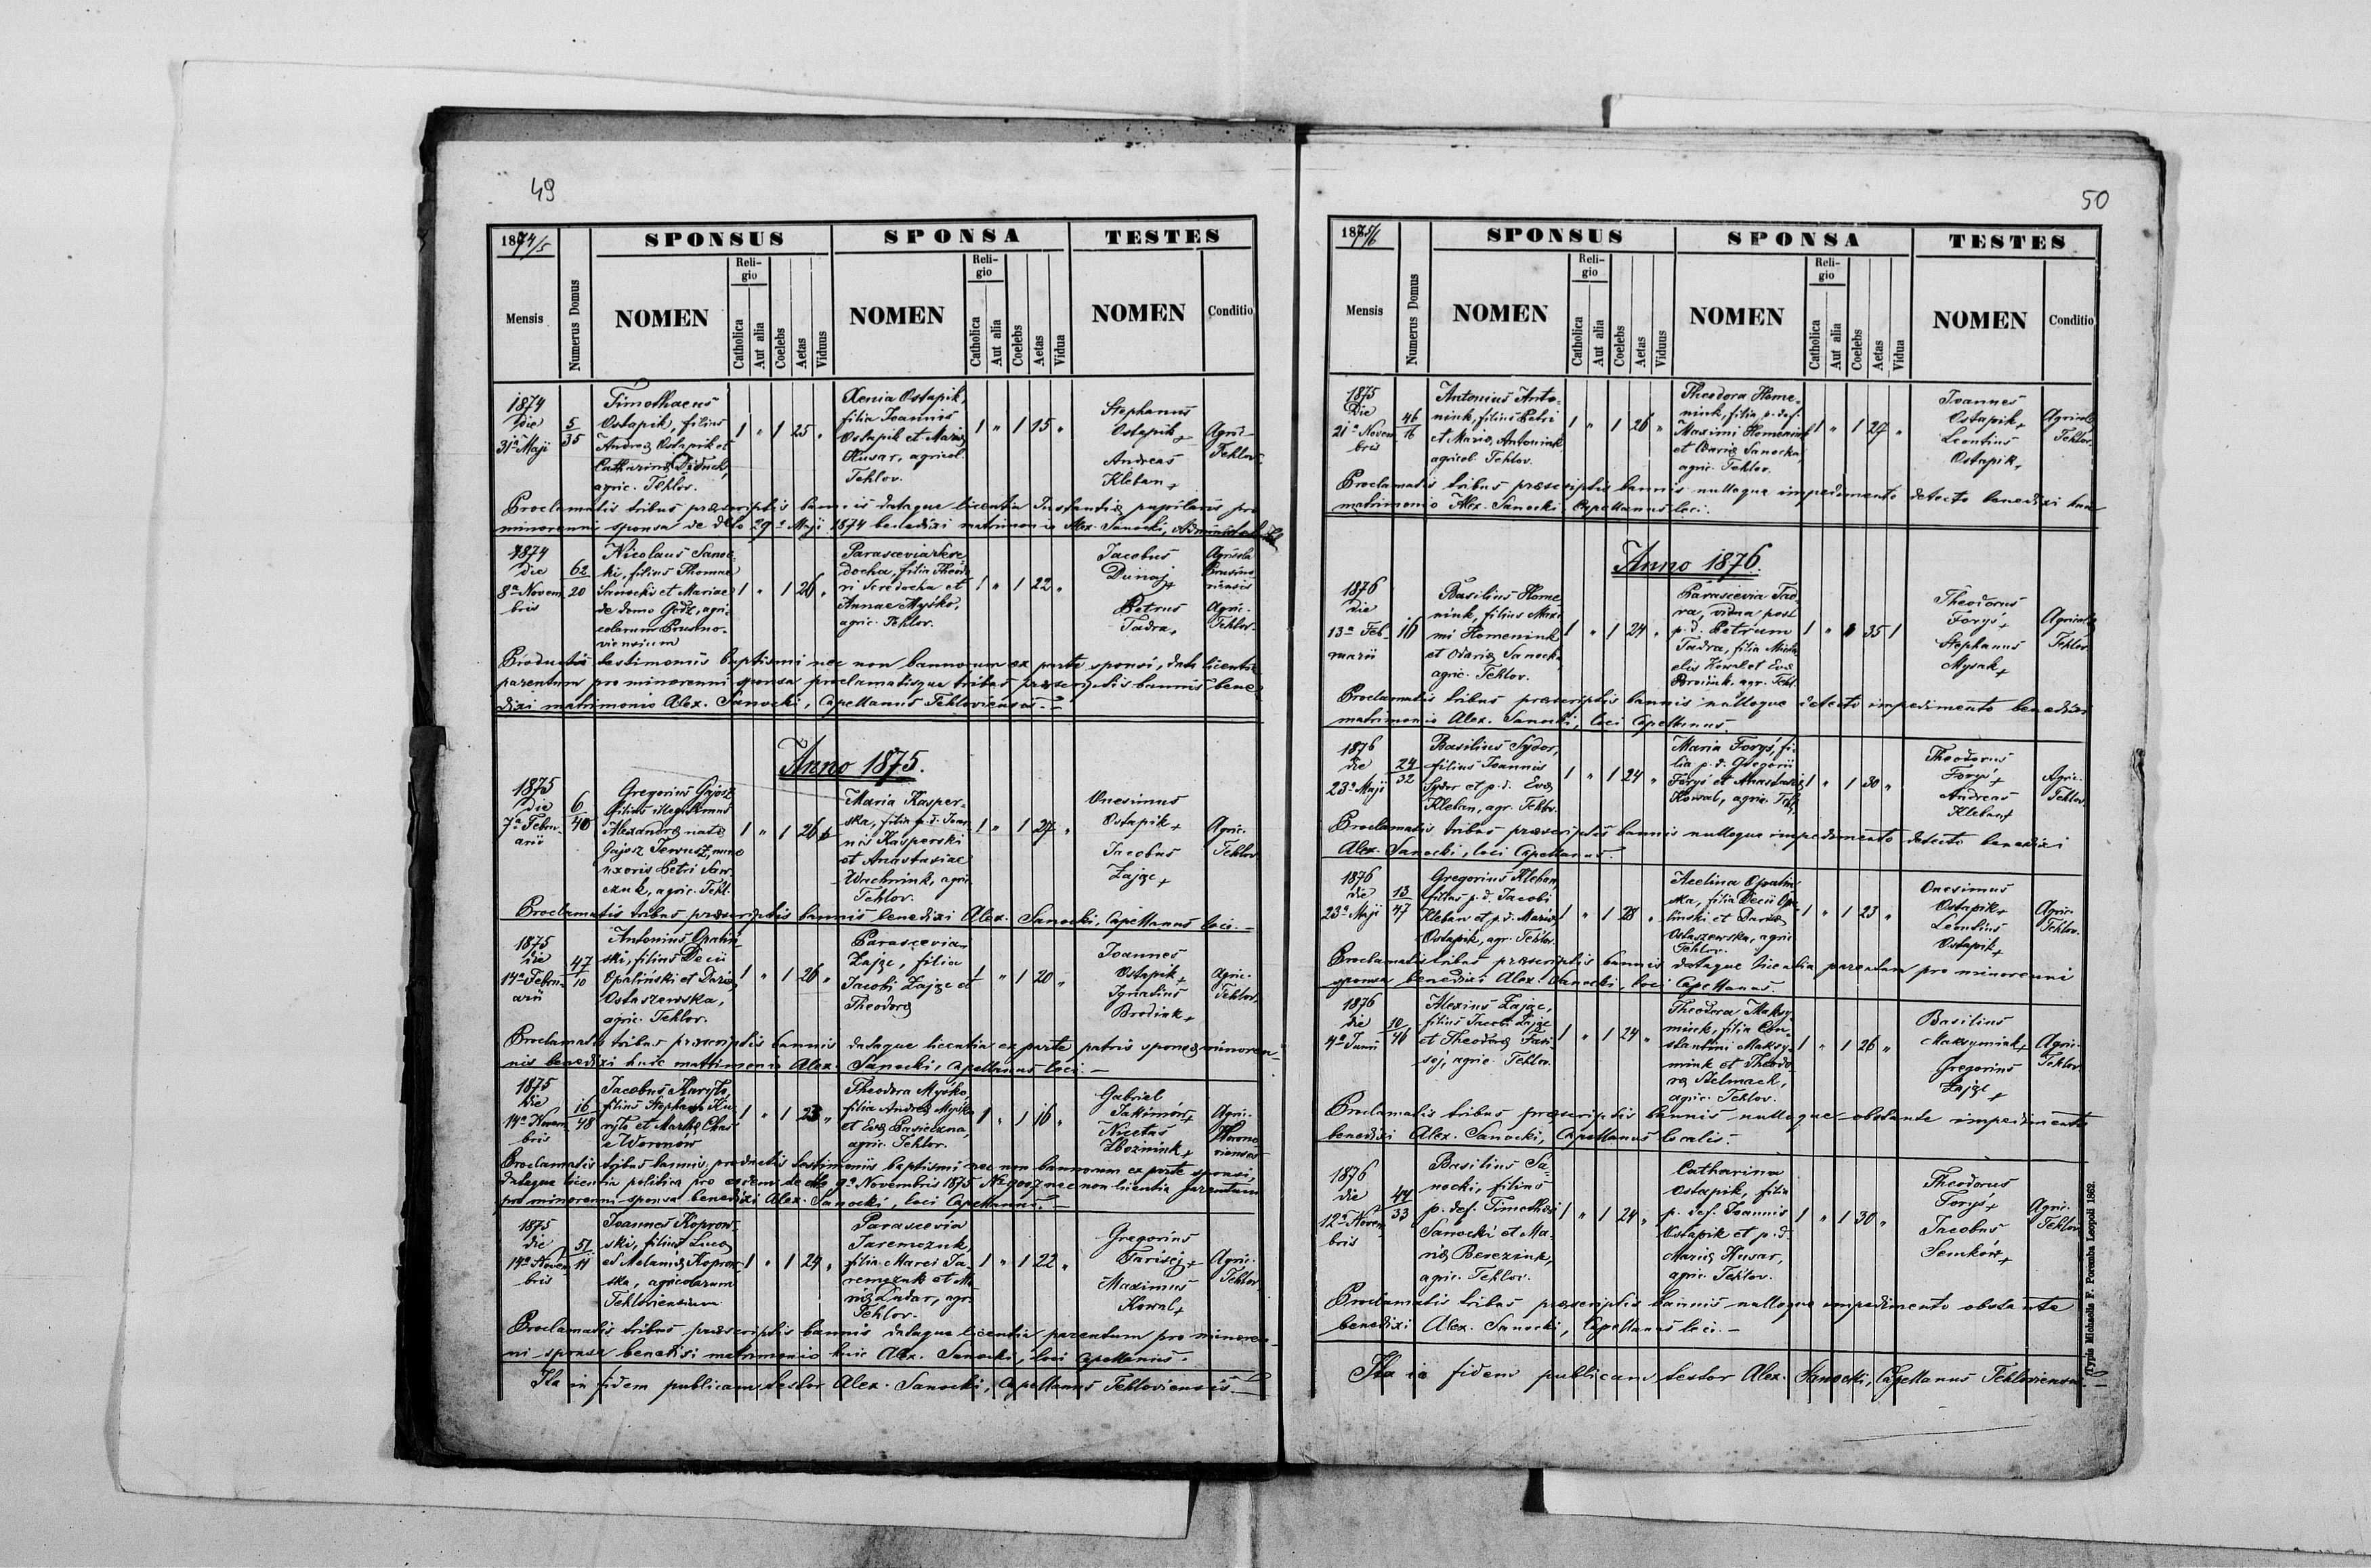 49
1874/5
SPONSUS
SPONSA
TESTES
Mensis
Numerus Domus
NOMEN
Religio
Catholica
Aut alia
Coelebs
Aetas
Viduus
NOMEN
Religio
Catholica
Aut alia
Coelebs
Aetas
Vidua
NOMEN
Conditio
1874
Die
31a Maji
5
35
Timothaeus
Ostapik, filius
Andreæ Ostapik et
Catharinæ Diduch,
agric. Tehlov.
1 " 1 25 "
Xenia Ostapik,
filia Joannis
Ostapik et Mariæ
Husar, agricol.
Tehlov.
1 " 1 15 "
Stephanus
Ostapik +
Andreas
Kleban +
Agric.
Tehlov.
Proclamatis tribus præscriptis bannis dataque licentia Instantiæ pupilaris pro
minorenni sponsa de dato 29a Maji 1874 benedixi matrimonio Alex. Sanocki,
1874
die
8a Novem
bris
62
20
Nicolaus Sanoc
ki, filius Thomae
Sanocki et Mariae
de domo agri
colarum Brusno-
viensium
1 " 1 26 "
Parascevia Sere
docha, filia Theodo
ri Seredocha et
Annae Myśko,
agric. Tehlov.
1 " 1 22 "
Jacobus
Dunaj +
Petrus
Tadra +
Agricola
Brusno
viensis
Agric.
Tehlov.
Productis testimoniis baptismi nec non bannorum ex parte sponsi, dati licentia
parentum pro minorenni sponsa proclamatisque tribus præscriptis bannis bene-
dixi matrimonio Alex. Sanocki, Capellanus Tehloviensis. –
Anno 1875.
1875
Die
7a Febru-
arii
6
40
Gregorius Gajosz
filius illegitimus
Alexandræ natæ
Gajosz nunc
uxoris Petri Saw-
czuk, agric. Tehl.
1 " 1 26
Maria Kasper-
ska, filia p. d. Joan
nis Kasperski
et Anastasiae
agric.
Tehlov.
1 " 1 27 "
Onesimus
Ostapik +
Jacobus
Zajze +
Agric.
Tehlov.
Proclamatis tribus præscriptis bannis benedixi Alex. Sanocki, Capellanus loci. –
1875
die
14a Febru-
arii
47
10
Antonius Opaliń
ski, filius Decii
Opaliński et Dariæ
Ostaszewska,
agric. Tehlov.
1 " 1 26 "
Parascevia
Zajze, filia
Jacobi Zajze et
Theodoræ
1 " 1 20 "
Joannes
Ostapik +
Ignatius
Brodiuk +
Agric.
Tehlov.
Proclamatis tribus præscriptis bannis dataque licentia ex parte patris sponsæ minoren-
nis benedixi huic matrimonio Alex. Sanocki, Capellanus loci. –
1875
Die
14a Novem
bris
16
48
Jacobus
filius Stephani
et Marthæ
e Woronów
1 " 1 23 "
Theodora Myśko
filia Andreæ Myśko
et Evæ Pasieczna,
agric. Tehlov.
1 " 1 16 "
Gabriel
Jakimów +
Nicetas
Zboźniuk +
Agric.
Worono-
vienses
Proclamatis tribus bannis, productis testimoniis baptismi nec non bannorum ex parte sponsi,
dataque licentia politica pro eodem de dto 9a Novembris 1875 nec non licentia parentum
pro minorenni sponsa benedixi Alex. Sanocki, loci Capellanus. –
1875
die
14a Novem
bris
51
11
Joannes Koprow-
ski, filius Lucæ
et Melaniæ Koprow
ska, agricolarum
Tehloviensium
1 " 1 24 "
Parascevia
Jaremczuk,
filia Marci Ja-
remczuk et Ma
riæ Dudar, agr.
Tehlov.
1 " 1 22 "
Gregorius
Farisej +
Maximus
Kowal +
Agric.
Tehlov.
Proclamatis tribus præscriptis bannis dataque licentia parentum pro minoren-
ni sponsa benedixi matrimonio huic Alex. Sanocki, loci Capellanus.
Ita in fidem publicam testor Alex. Sanocki, Capellanus Tehloviensis. –
50
1875/6
SPONSUS
SPONSA
TESTES
Mensis
Numerus Domus
NOMEN
Religio
Catholica
Aut alia
Coelebs
Aetas
Viduus
NOMEN
Religio
Catholica
Aut alia
Coelebs
Aetas
Vidua
NOMEN
Conditio
1875
Die
21a Novem
bris
46
16
Antonius Anto-
niuk, filius Petri
et Mariæ Antoniuk
agricol. Tehlov.
1 " 1 26 "
Theodora Home-
niuk, filia p. def.
Maximi Homeniuk
et Odariæ Sanocka,
agric. Tehlov.
1 " 1 27 "
Joannes
Ostapik +
Leontius
Ostapik +
Agricolæ
Tehlov.
Proclamatis tribus præscriptis bannis nulloque impedimento detecto benedixi huic
matrimonio Alex. Sanocki, Capellanus loci.
Anno 1876.
1876
die
13a Feb-
ruarii
16
Basilius Home
niuk, filius Maxi
mi Homeniuk
et Odariæ Sanocka
agric. Tehlov.
1 " 1 24 "
Parascevia Tad
ra, vidua post
p. d. Petrum
Tadra, filia Micha
elis Kowal et Evæ
Brodiuk, agr. Tehl.
1 " " 35 1
Theodorus
Foryś +
Stephanus
Mysak +
Agricolæ
Tehlov.
Proclamatis tribus præscriptis bannis nulloque detecto impedimento benedixi
matrimonio Alex. Sanocki, loci Capellanus.
1876
die
23a Maji
24
32
Basilius Sydor,
filius Joannis
Sydor et p. d. Evæ
Kleban, agr. Tehlov.
1 " 1 24 "
Maria Foryś, fi-
lia p. d. Gregorii
Foryś et Anastasiæ
Kowal, agric. Tehl.
1 " 1 30 "
Theodorus
Foryś +
Andreas
Kleban +
Agric.
Tehlov.
Proclamatis tribus præscriptis bannis nulloque impedimento detecto benedixi
Alex. Sanocki, loci Capellanus.
1876
die
23a Maji
13
47
Gregorius Kleban,
filius p. d. Jacobi
Kleban et p. d. Mariæ
Ostapik, agr. Tehlov.
1 " 1 28 "
Acelina Opaliń
ska, filia Decii Opa-
liński et Dariæ
Ostaszewska, agric.
Tehlov.
1 " 1 23 "
Onesimus
Ostapik +
Leontius
Ostapik +
Agric.
Tehlov.
Proclamatis tribus præscriptis bannis dataque licentia parentum pro minorenni
sponsa benedixi Alex. Sanocki, loci Capellanus.
1876
die
4a Junii
10
46
Alexius Zajze,
filius Jacobi Zajze
et Theodoræ Fari-
sej, agric. Tehlov.
1 " 1 24 "
Theodora Maksy-
miuk, filia Con-
stantini Maksy-
miuk et Theodo-
ræ Stelmach,
agric. Tehlov.
1 " 1 26 "
Basilius
Maksymiuk +
Gregorius
Zajze +
Agric.
Tehlov.
Proclamatis tribus præscriptis bannis nulloque obstante impedimento
benedixi Alex. Sanocki, Capellanus localis.
1876
die
12a Novem
bris
44
33
Basilius Sa-
nocki, filius
p. def. Timothei
Sanocki et Ma-
riæ Bereziuk,
agric. Tehlov.
1 " 1 24 "
Catharina
Ostapik, filia
p. def. Joannis
Ostapik et p. d.
Mariæ Husar,
agric. Tehlov.
1 " 1 30 "
Theodorus
Foryś +
Jacobus
Senków +
Agric.
Tehlov.
Proclamatis tribus præscriptis bannis nulloque impedimento obstante
benedixi Alex. Sanocki, Capellanus loci. –
Ita in fidem publicam testor Alex. Sanocki, Capellanus Tehloviensis.
Typis Michaelis F. Poremba Leopoli 1862.